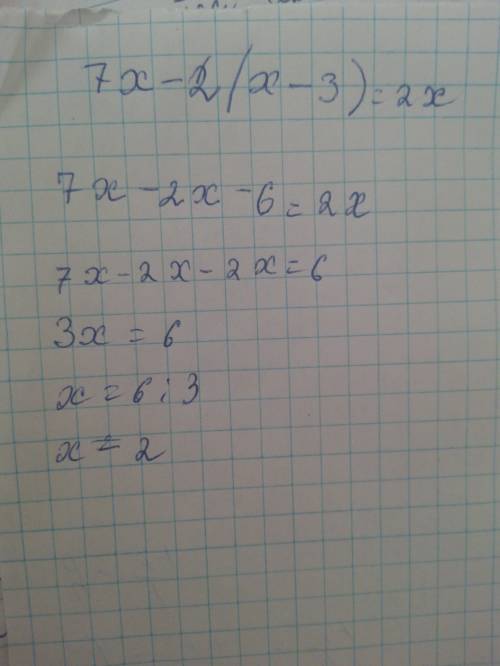 7x - 2(x - 3) = 2x
7x - 2x - 6 = 2x
7x - 2x - 2x = 6
3x = 6
x = 6 : 3
x = 2